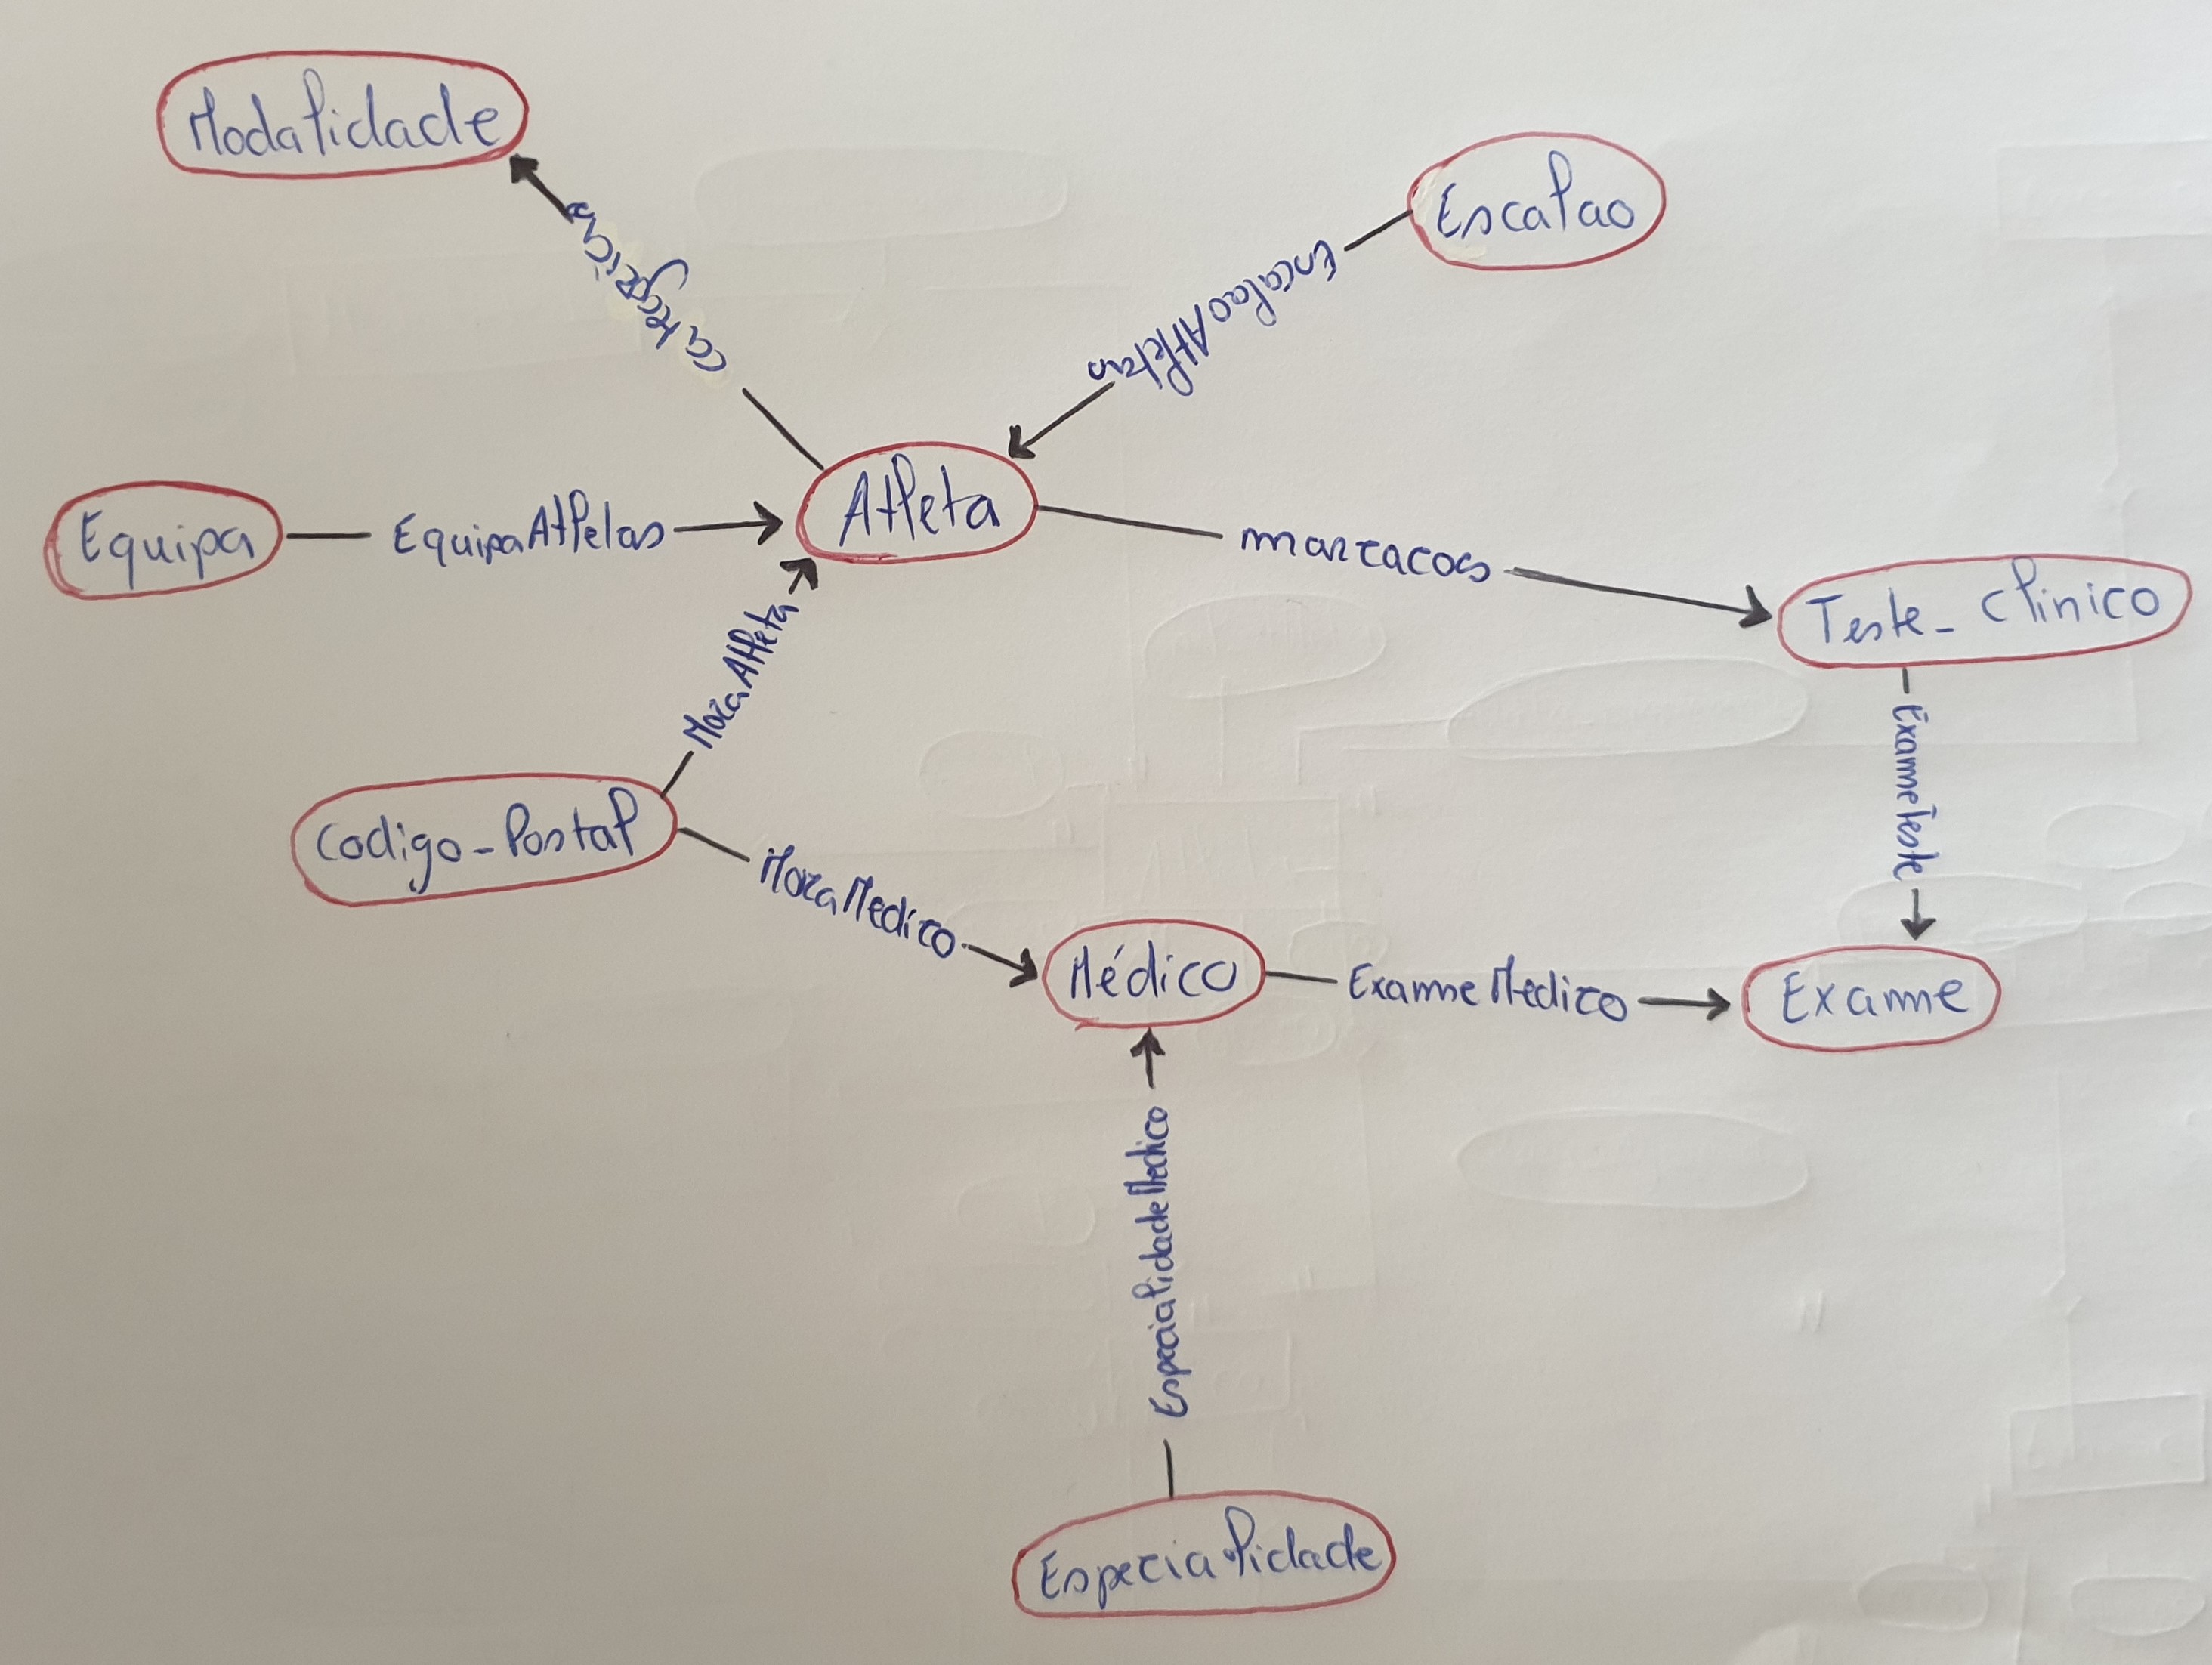 Modalidade
Escalao
categorias
EscalaoAtletas
Equipa
EquipaAtletas
Atleta
marcacoes
Teste_Clinico
MoraAtleta
ExameTeste
Codigo_Postal
MoraMedico
Médico
ExameMedico
Exame
EspecialidadeMedico
Especialidade